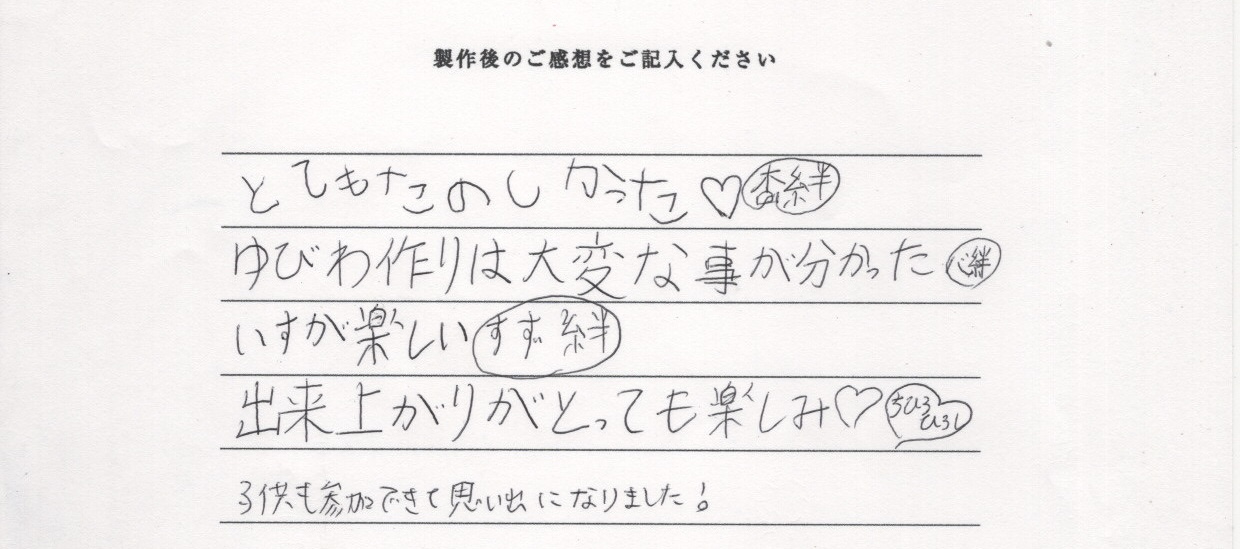 製作後のご感想をご記入ください
とてもたこのしかった♡ 杏絆
ゆびわ作りは大変な事が分かった 心絆
いすが楽しい すず絆
出来上がりがとっても楽しみ♡ ちひろ ひろし
子供も参加できて思い出になりました!